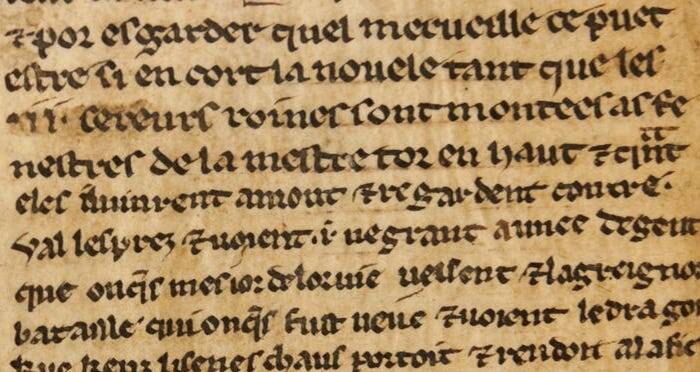 ⁊ por esgarder quel merueille ce puet
estre si en cort la nouele tant que les
.iii. sereurs roines sont montees as fe
nestres de la mestre tor en haut ⁊ qͣnt
eles i uinrent amont ⁊ regardent contre
ual les prez ⁊ uoient .i. ue grant aunee de gent
que onq̄s mes ior de lor uie ueissent ⁊ la greignor
bataille qui onq̄s fust ueue ⁊ uoient le drago
chaus portoit ⁊